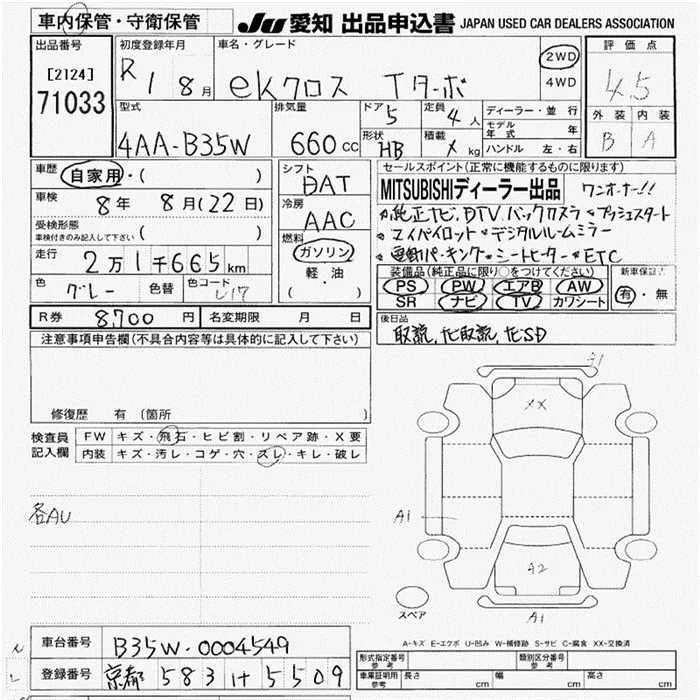 車内保管・守衛保管
JU 愛知 出品申込書 JAPAN USED CAR DEALERS ASSOCIATION
出品番号 [2124] 71033
初度登録年月 R 1 8月
車名・グレード eKクロス Tターボ
2WD 4WD
評価点 4.5
外装 B 内装 A
型式 4AA-B35W
排気量 660cc
ドア 5 形状 HB
定員 4人 積載 X kg
ディーラー・並行
モデル年式 年
ハンドル 左・右
車歴 自家用・( )
車検 8年 8月(22日)
受検形態 車検付きのみ記入して下さい ( )
走行 2万1千665km
色 グレー 色替 色コード U17
シフト DAT
冷房 AAC
燃料 ガソリン・軽油 ( )
セールスポイント(正常に機能するものに限ります)
MITSUBISHIディーラー出品 ワンオーナー!!
純正ナビ、DTV バックカメラ プッシュスタート
マイパイロット デジタルルームミラー
電動パーキング シートヒーター ETC
装備品(純正品に限り○をつけてください)
PS PW エアB AW
SR ナビ TV カワシート
新車保証書 有・無
R券 8,700円 名変期限 月 日
後日品
取説, ナビ取説, ナビSD
注意事項申告欄(不具合内容等は具体的に記入して下さい)
修復歴 有(箇所 )
検査員記入欄
FW キズ・飛石・ヒビ割・リペア跡・X要
内装 キズ・汚レ・コゲ・穴・スレ・キレ・破レ
各AU
XX
A1
A2
A1
スペア
A-キズ E-エクボ U-凹み W-補修跡 S-サビ C-腐食 XX-交換済
車台番号 B35W-0004549
登録番号 京都 583 け 5509
形式指定番号 参考
類別区分番号 参考
車庫証明用 参考 長さ cm 幅 cm 高さ cm